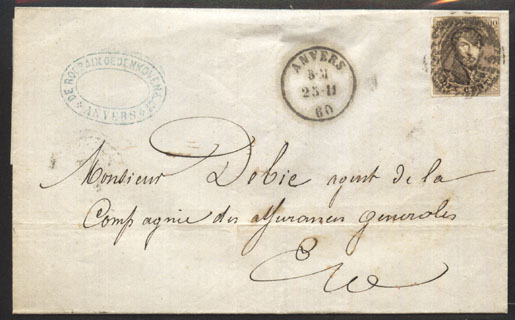 DE ROUBAIX OEDENKOVEN & Cº
ANVERS
ANVERS
25-II
60
10
Monsieur Dobie agent de la
Compagnie des assurances generales